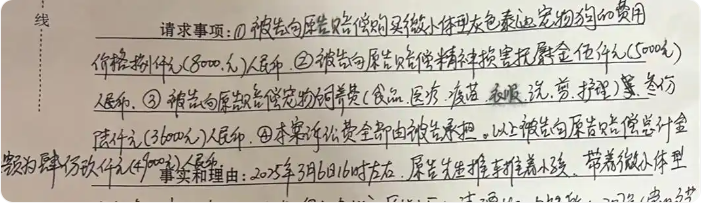 线
请求事项：①被告向原告赔偿购买微小体型灰色泰迪宠物狗的费用
价格捌仟元(8000.元)人民币.②被告向原告赔偿精神损害抚慰金伍仟元(5000元)
人民币.③被告向原告赔偿宠物饲养费(食品.医疗.疫苗.衣服.洗.剪.护理)等.叁万
陆仟元(36000元)人民币.④本案诉讼费全部由被告承担。以上被告向原告赔偿总计金
额为肆万玖仟元(49000元)人民币.
事实和理由：2025年3月6日16时左右.原告先生推车推着小孩.带着微小体型